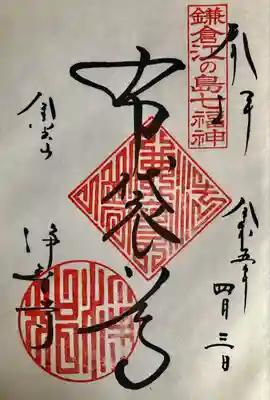 鎌倉江の島七福神
奉拝
令和五年四月三日
布袋尊
金宝山
浄智寺